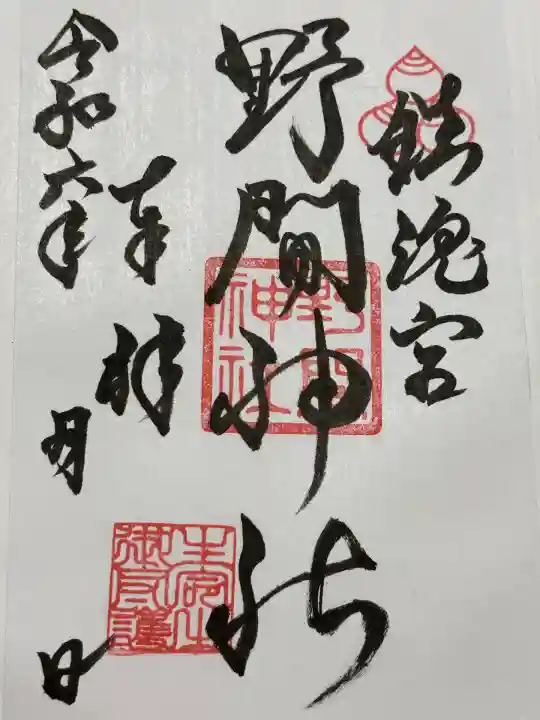 鎮魂宮
野間神社
奉拝
令和六年
月
日
野間
神社